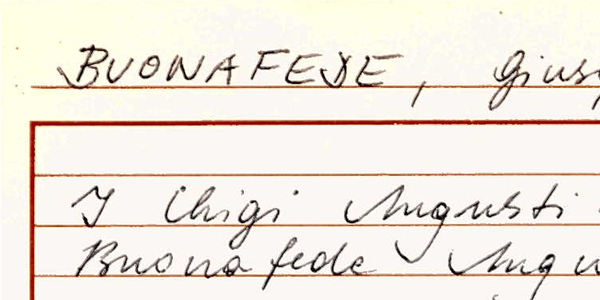 BUONAFEDE, Gius
I Chigi Augusti
Buonafede Augu